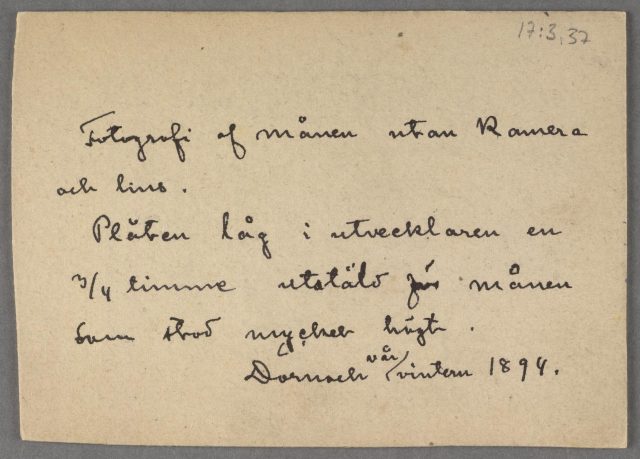 17:3,37
Fotografi af månen utan Kamera
och lins.
Plåten låg i utvecklaren en
3/4 timme utstäld för månen
som stod mycket högt.
Dornach vår/vintern 1894.